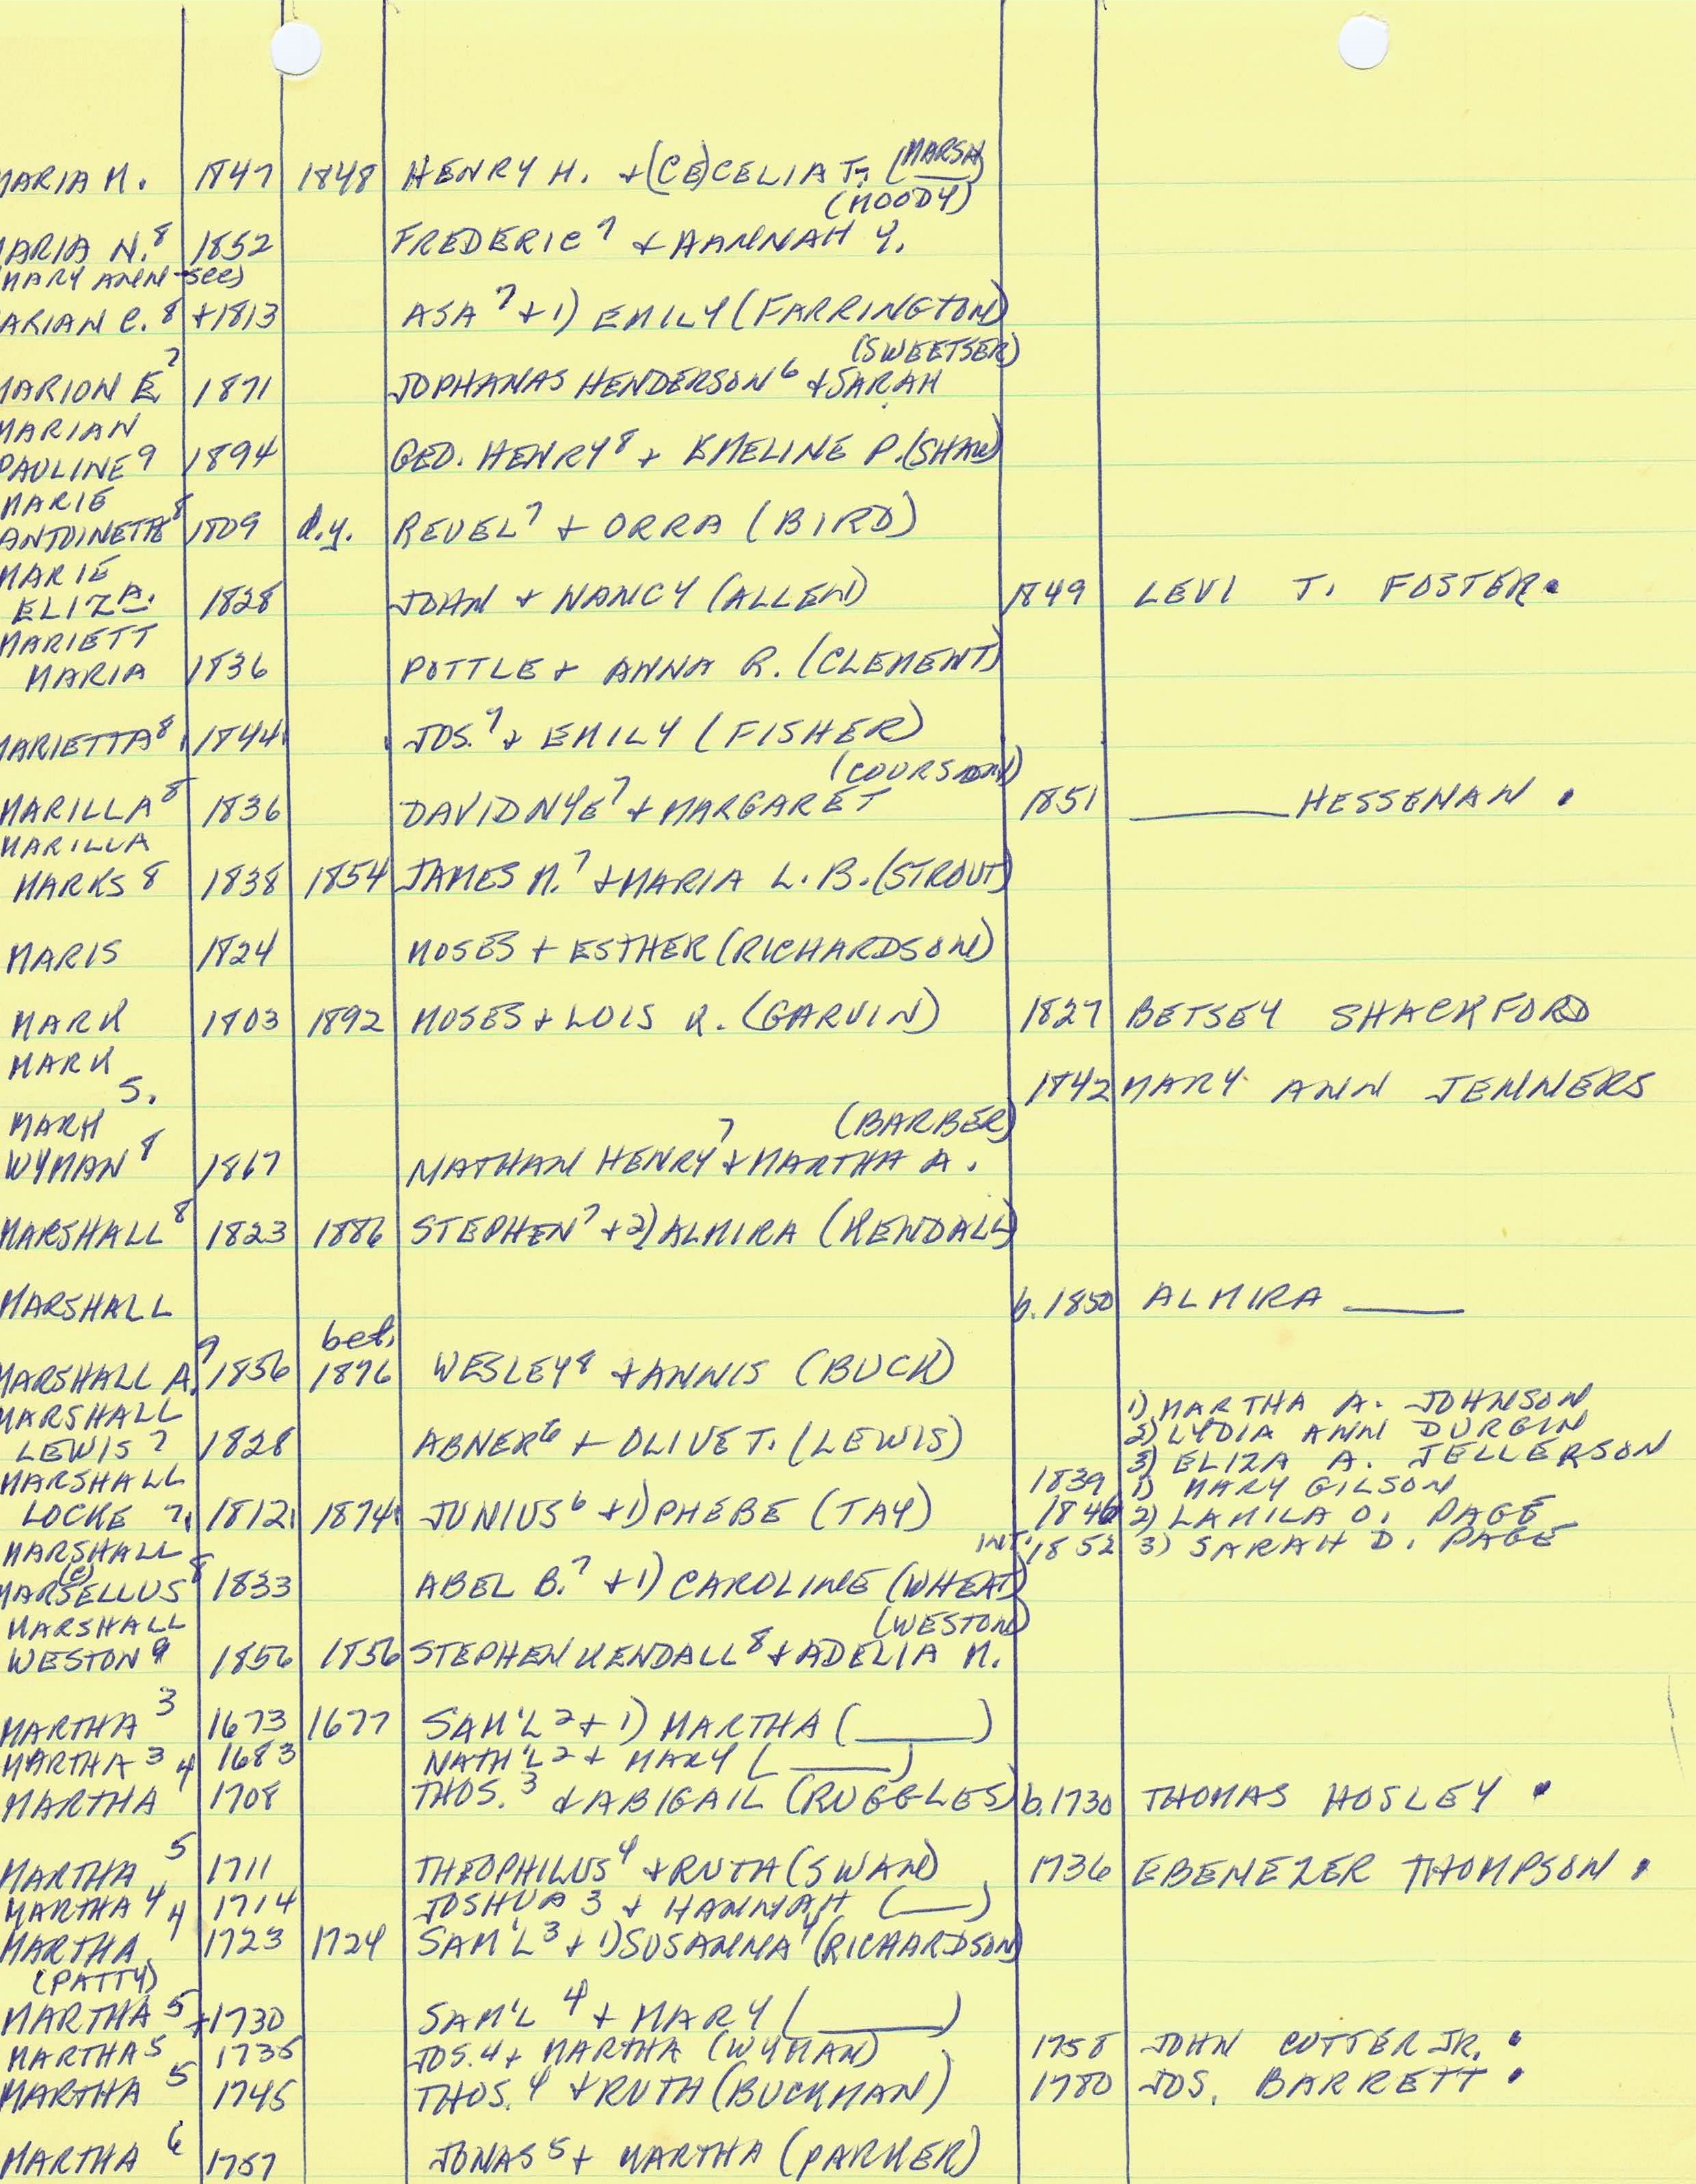 MARIA M. 1847 1848 HENRY H. + (CE)CELIA T. (MARSH)
(MOODY)
MARIA N.⁸ 1852 FREDERIC⁷ + HANNAH Y.
MARY ANN - see)
MARIAN C.⁸ +1813 ASA⁷ + 1) EMILY (FARRINGTON)
(SWEETSER)
MARION E.⁷ 1871 JOPHANAS HENDERSON⁶ + SARAH
MARIAN
PAULINE⁹ 1894 GEO. HENRY⁸ + EMELINE P. (SHAW)
MARIE
ANTOINETTE⁸ 1809 d.y. REUEL⁷ + ORRA (BIRD)
MARIE
ELIZA. 1828 JOHN + NANCY (ALLEN) 1849 LEVI T. FOSTER.
MARIETT
MARIA 1836 POTTLE + ANNA R. (CLEMENT)
MARIETTA⁸ 1844 JOS.⁷ + EMILY (FISHER)
MARILLA⁸ 1836 DAVID NYE⁷ + MARGARET 1851 ____ HESSENAW .
MARILLA
MARKS 8 1838 1854 JAMES M.⁷ + MARIA L. B. (STROUT)
MARIS 1824 MOSES + ESTHER (RICHARDSON)
MARK 1803 1892 MOSES + LOIS K. (GARVIN) 1827 BETSEY SHACKFORD
MARK
S. 1842 MARY ANN JENNERS
MARK (BARBER)
WYMAN⁸ 1867 NATHAN HENRY⁷ + MARTHA A.
MARSHALL⁸ 1823 1886 STEPHEN⁷ + 2) ALMIRA (KENDALL)
MARSHALL b. 1850 ALMIRA ____
bet.
MARSHALL A.⁹ 1856 1876 WESLEY⁸ + ANNIS (BUCK)
MARSHALL 1) MARTHA A. JOHNSON
2) LYDIA ANN DURGIN
LEWIS⁷ 1828 ABNER⁶ + OLIVE T. (LEWIS) 3) ELIZA A. JELLERSON
MARSHALL 1839 1) MARY GILSON
LOCKE 7. 1812 1874 JUNIUS⁶ + 1) PHEBE (TAY) 1846 2) LAMILA O. PAGE
MARSHALL INT. 1852 3) SARAH D. PAGE
(C)
MARSELLUS⁸ 1833 ABEL B.⁷ + 1) CAROLINE (WHEAT)
MARSHALL (WESTON)
WESTON 9 1856 1856 STEPHEN KENDALL⁸ + ADELIA M.
MARTHA³ 1673 1677 SAM'L² + 1) MARTHA (____)
MARTHA³ 1683 NATH'L² + MARY (____)
MARTHA⁴ 1708 THOS.³ + ABIGAIL (RUGGLES) b. 1730 THOMAS HOSLEY .
MARTHA⁵ 1711 THEOPHILUS⁴ + RUTH (SWAN) 1736 EBENEZER THOMPSON .
MARTHA⁴ 1714 JOSHUA 3 + HANNAH (__)
MARTHA⁴ 1723 1724 SAM'L³ + 1) SUSANNA⁴ (RICHARDSON)
(PATTY)
MARTHA⁵ +1730 SAM'L⁴ + MARY (____)
MARTHA⁵ 1735 JOS.4 + MARTHA (WYMAN) 1758 JOHN CUTTER JR. .
MARTHA⁵ 1745 THOS.⁴ + RUTH (BUCKMAN) 1780 JOS. BARRETT .
MARTHA⁶ 1757 JONAS⁵ + MARTHA (PARKER)